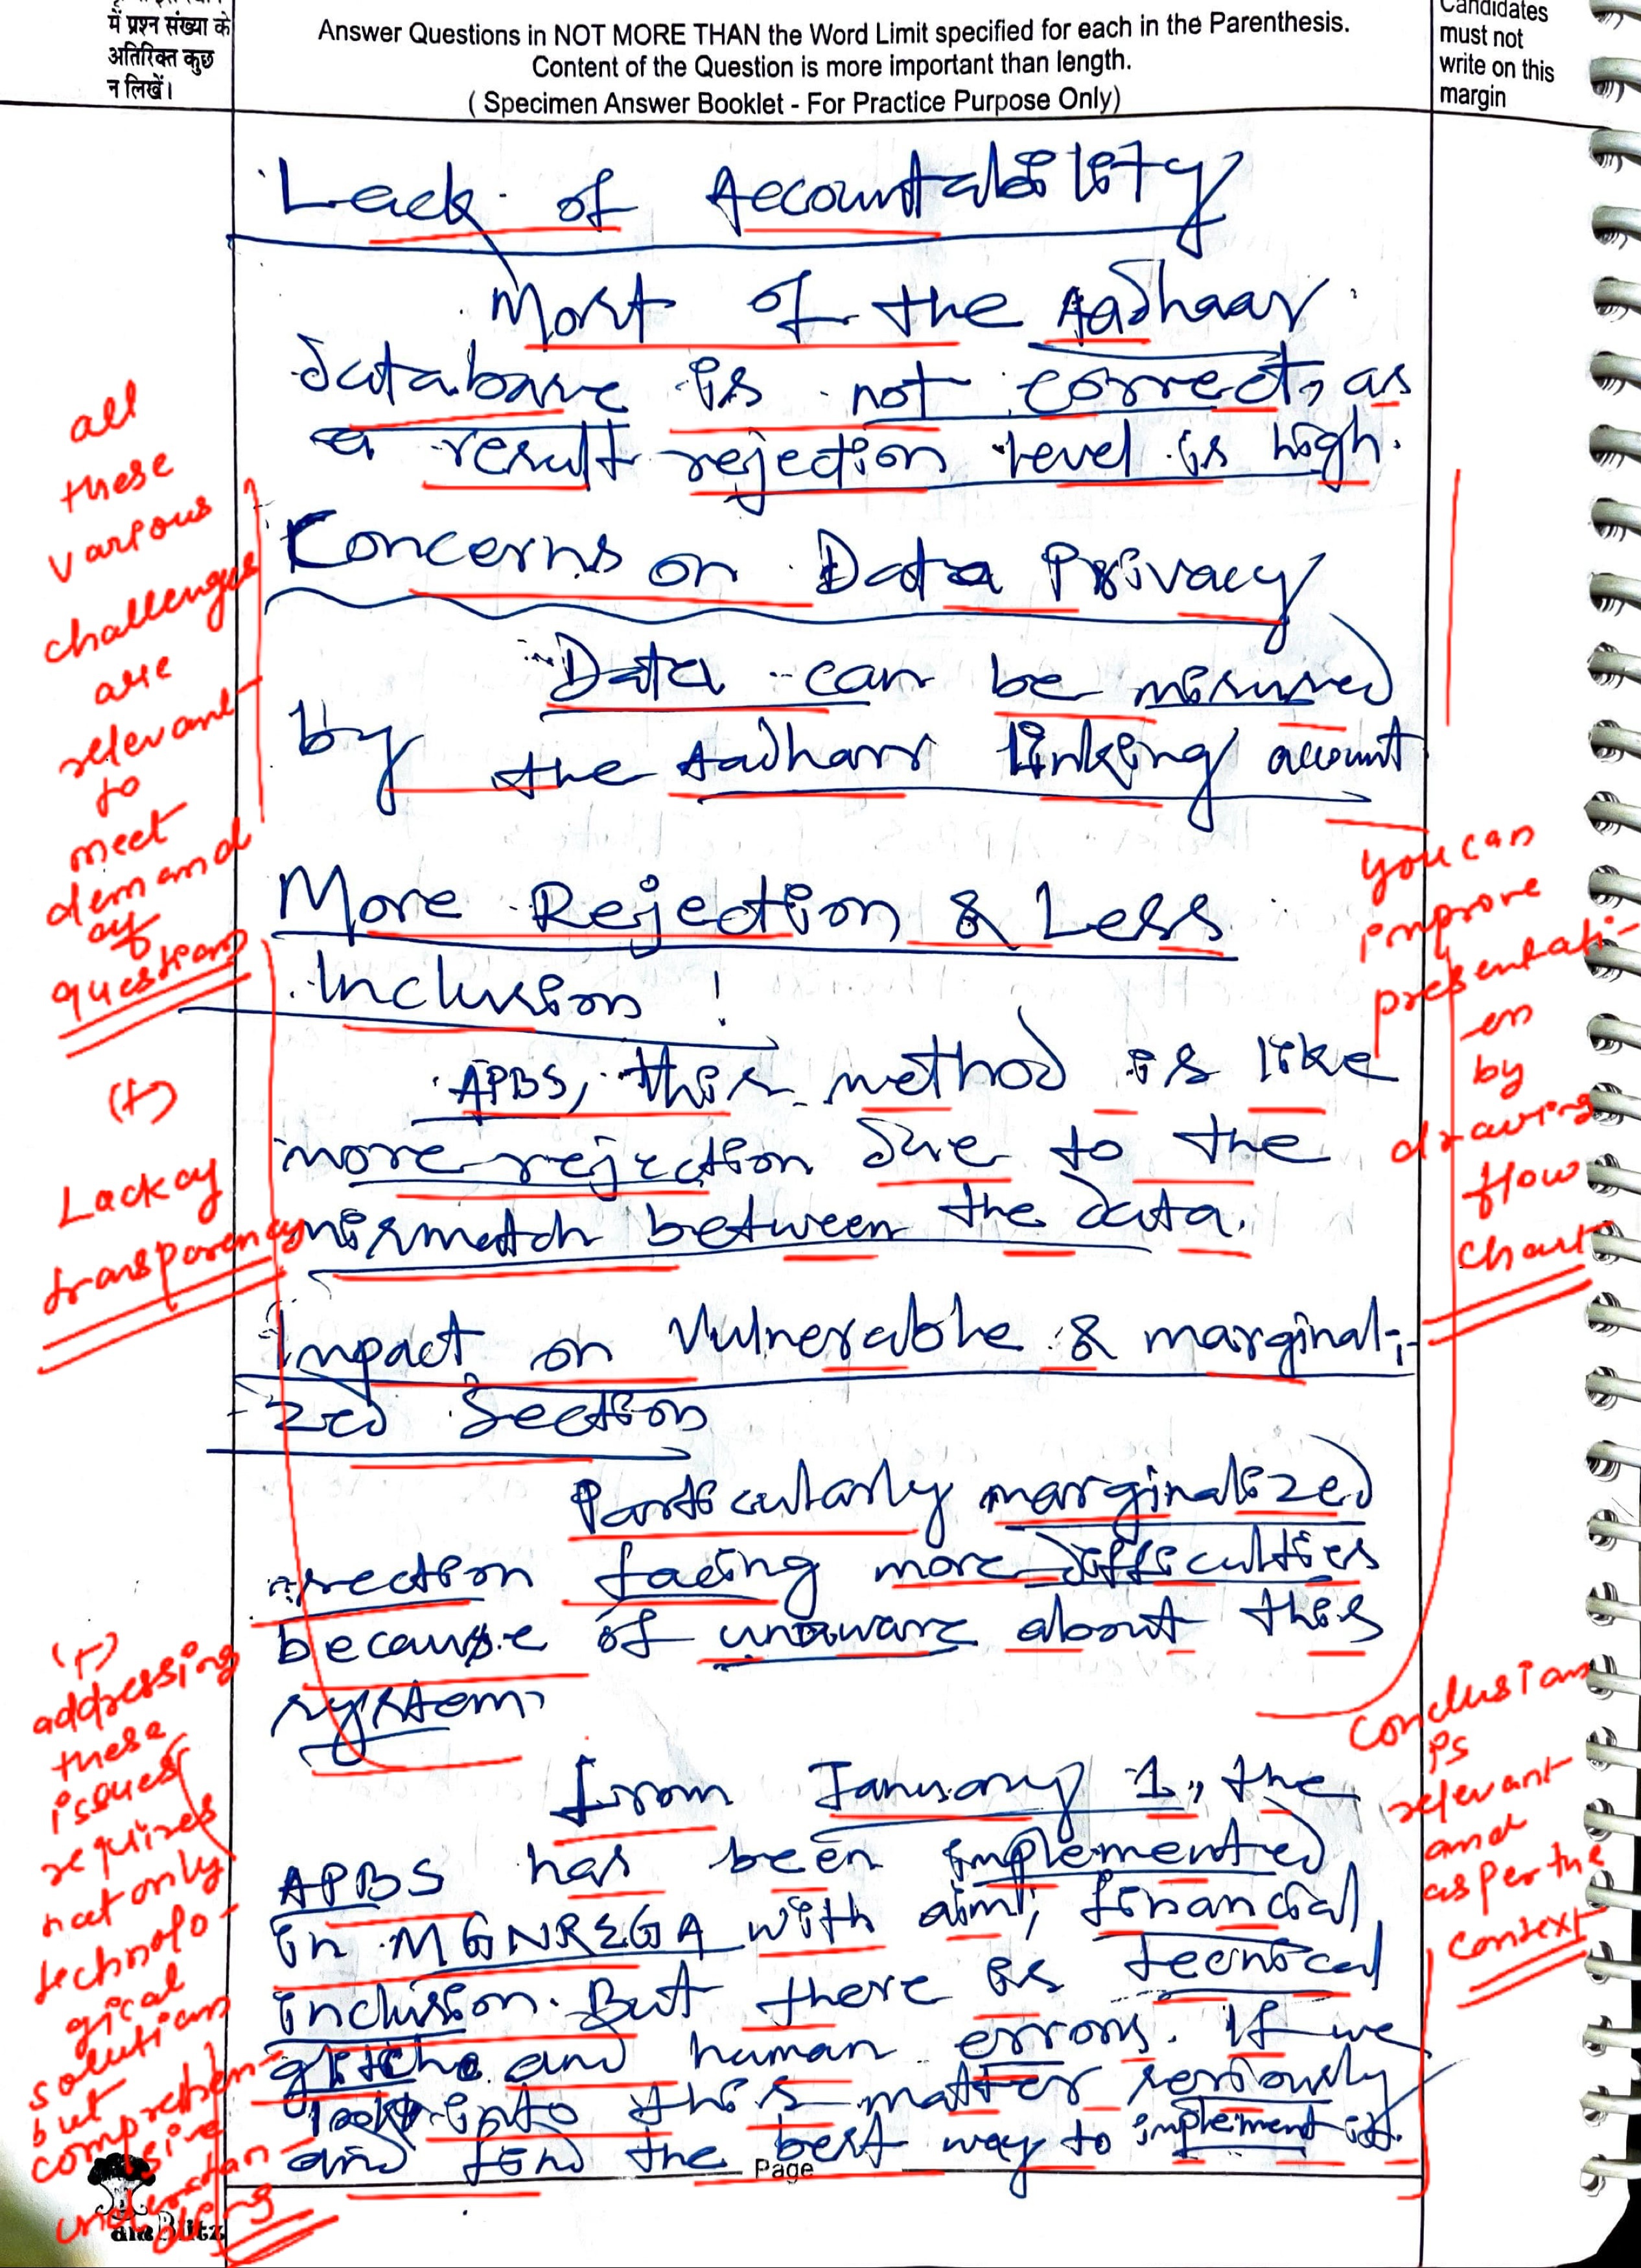 में प्रश्न संख्या के
अतिरिक्त कुछ
न लिखें।
Answer Questions in NOT MORE THAN the Word Limit specified for each in the Parenthesis.
Content of the Question is more important than length.
( Specimen Answer Booklet - For Practice Purpose Only)
Candidates
must not
write on this
margin
Lack of Accountability
Most of the Aadhaar
database is not correct, as
a result rejection level is high.
Concerns on Data Privacy
Data can be misused
by the Aadhaar linking account
More Rejection & Less
Inclusion !
APBS, this method is like
more rejection due to the
mismatch between the data.
Impact on Vulnerable & marginali-
zed Section
Particularly marginalized
section facing more difficulties
because of unaware about this
system.
From January 1, the
APBS has been implemented
in MGNREGA with aim, financial
inclusion. But there is tecnical
glitche and human errors. If we
look into this matter seriously
and find the best way to implement it.
all
these
various
challenges
are
relevant
to
meet
demand
of
question
(+)
Lack of
transparency
(+)
addressing
these
issues
requires
not only
technolo-
gical
solutions
but
comprehen-
sive
understan
ding
you can
improve
presentati-
on
by
drawing
flow
chart
conclusion
is
relevant
and
as per the
context
Page